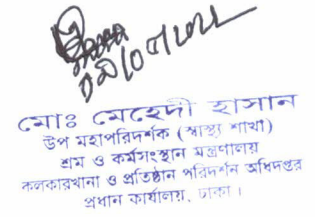 মোঃ মেহেদী হাসান
উপ মহাপরিদর্শক (স্বাস্থ্য শাখা)
শ্রম ও কর্মসংস্থান মন্ত্রণালয়
কলকারখানা ও প্রতিষ্ঠান পরিদর্শন অধিদপ্তর
প্রধান কার্যালয়, ঢাকা।